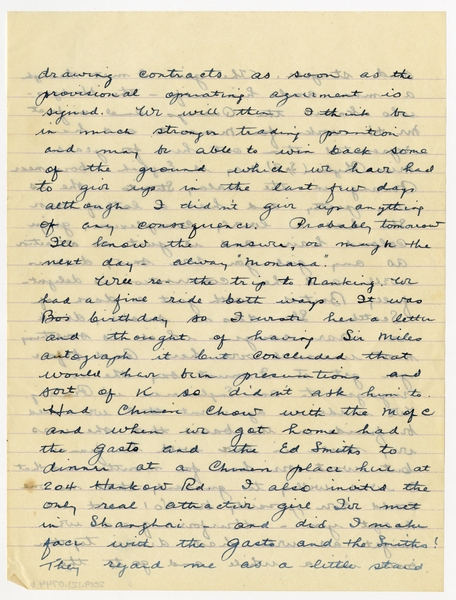 drawing contracts as soon as the
provisional - operating agreement is
signed. We will then I think be
in much stronger trading position
and may be able to win back some
of the ground which we have had
to give up in the last few days
although I didn't give up anything
of any consequence. Probably tomorrow
I'll know the answer, or maybe the
next day - alway "Monana".
Well re - the trip to Nanking. We
had a fine ride both ways. It was
Bo's birthday so I wrote her a letter
and thought of having Sir Miles
autograph it but concluded that
would have been presumptious and
sort of K so didn't ask him to.
Had Chinese Chow with the M of C
and when we got home had
the Gasts and the Ed Smiths to
dinner at a Chinese place here at
204 Hankow Rd. I also invited the
only real attractive girl I've met
in Shanghai - and did I make
face with the Gasts and the Smiths!
They regard me as a little staid
2009.121.0744